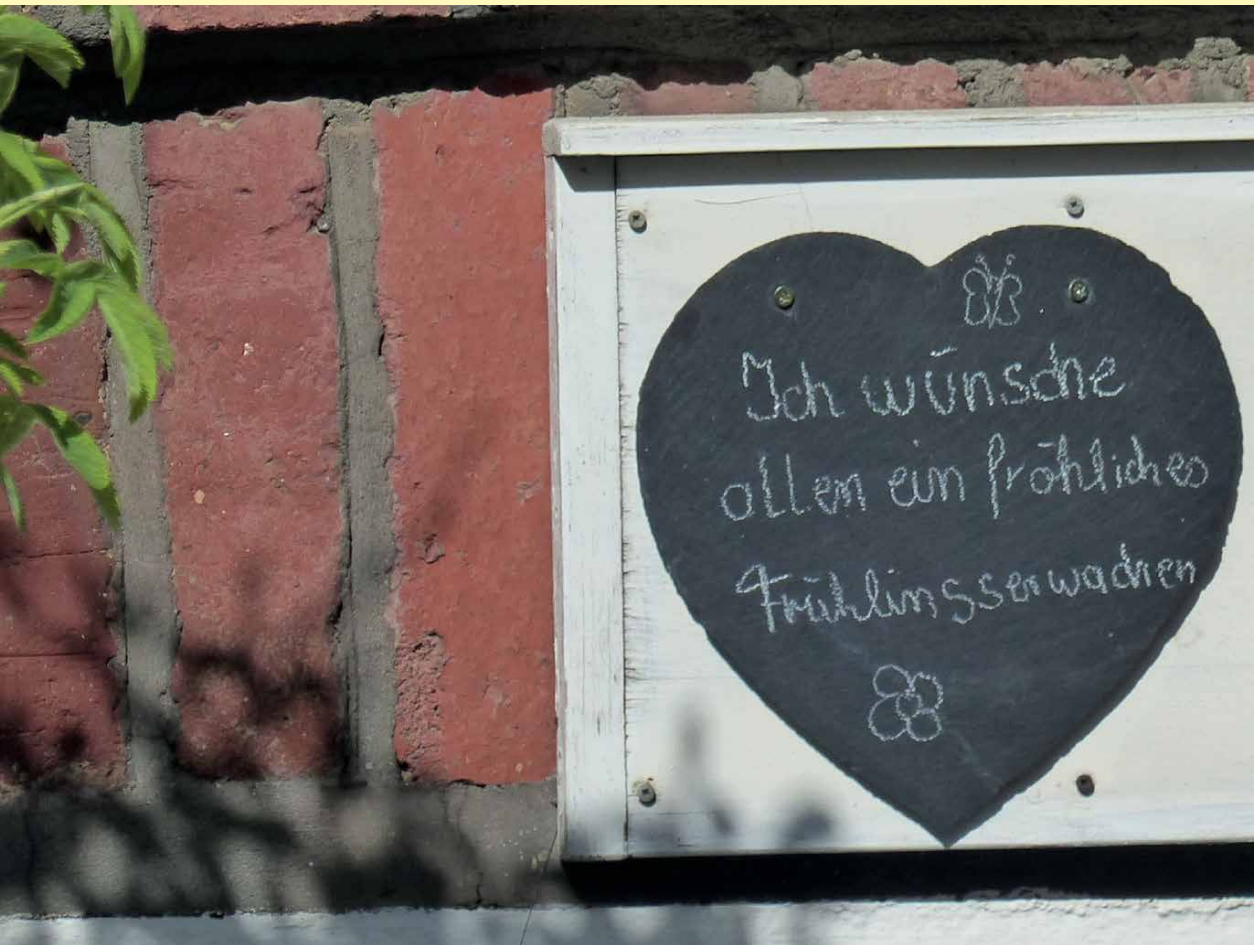 Ich wünsche
allen ein fröhliches
Frühlingsserwachen